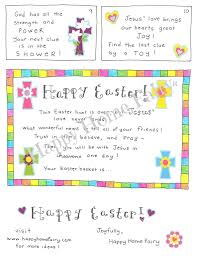 9
God has all the
strength and
POWER
Your next clue
is in the
SHOWER!
10
Jesus' love brings
our hearts great
Joy!
Find the last clue
by a TOY!
Happy Easter!
This Easter hunt is over Jesus'
love never ends
What wonderful news to tell all of your friends!
Just in Him, believe, and pray -
This will be with Jesus in
Heaven one day!
in your basket is
Happy Easter!
visit
www.happyhomefairy.com
for more ideas!
Joyfully,
Happy Home Fairy